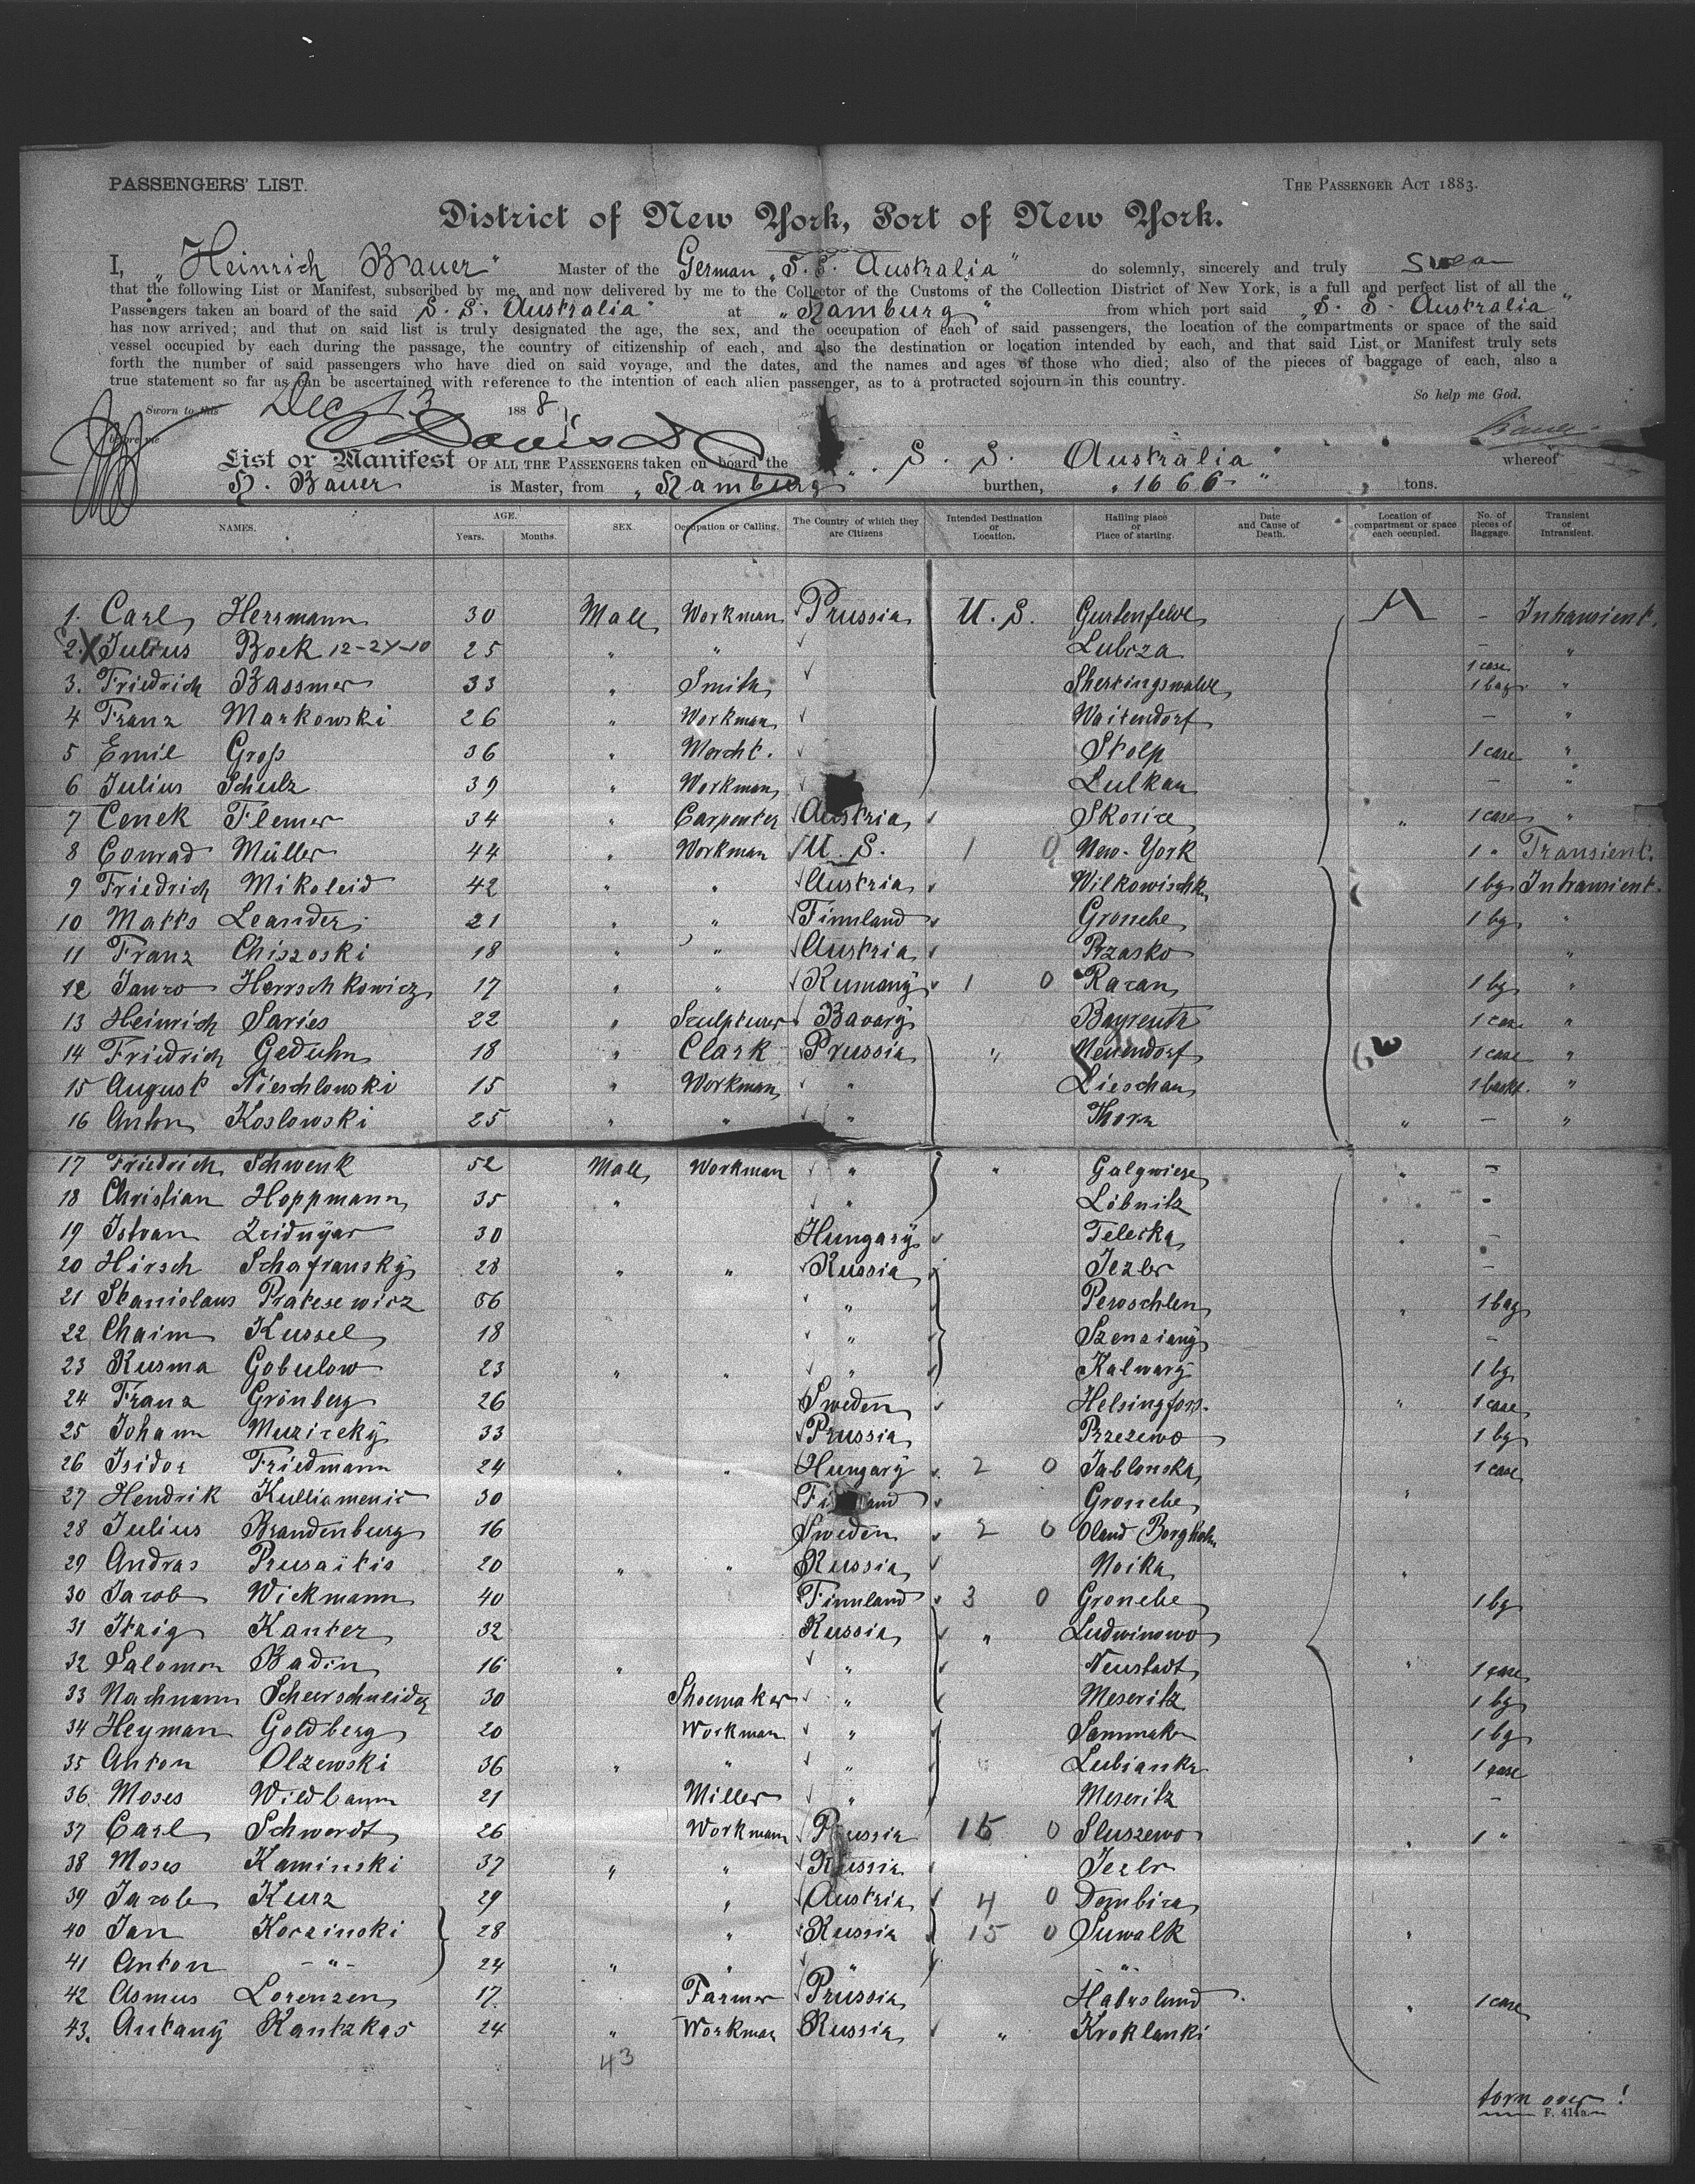 PASSENGERS' LIST. THE PASSENGER ACT 1883.
District of New York, Port of New York.
I, „Heinrich Bauer" Master of the German „S. S. Australia" do solemnly, sincerely and truly swear
that the following List or Manifest, subscribed by me, and now delivered by me to the Collector of the Customs of the Collection District of New York, is a full and perfect list of all the
Passengers taken on board of the said S. S. Australia" at „Hamburg" from which port said „S. S. Australia"
has now arrived; and that on said list is truly designated the age, the sex, and the occupation of each of said passengers, the location of the compartments or space of the said
vessel occupied by each during the passage, the country of citizenship of each, and also the destination or location intended by each, and that said List or Manifest truly sets
forth the number of said passengers who have died on said voyage, and the dates, and the names and ages of those who died; also of the pieces of baggage of each, also a
true statement so far as can be ascertained with reference to the intention of each alien passenger, as to a protracted sojourn in this country.
So help me God.
Sworn to this Dec 13 1888
before me Davis Bauer
List or Manifest OF ALL THE PASSENGERS taken on board the „S. S. Australia" whereof
H. Bauer is Master, from „Hamburg burthen, „1666" tons.
NAMES. AGE. Years. Months. SEX. Occupation or Calling. The Country of which they are Citizens Intended Destination or Location. Hailing place or Place of starting. Date and Cause of Death. Location of compartment or space each occupied. No. of pieces of Baggage. Transient or Intransient.
1. Carl Herrmann 30 Male Workman Prussia U. S. Gurtenfelde A - Intransient.
2. X Julius Bock 12-24-10 25 " " Lubcza - "
3. Friedrich Bassmer 33 " Smith 1 case 1 bag "
4 Franz Markowski 26 " Workman Waitendorf - "
5 Emil Groß 36 " Mercht. Stolp 1 case "
6 Julius Schulz 39 " Workman Lulkau - "
7 Cenek Flemer 34 " Carpenter Austria Skorice " 1 case "
8 Conrad Müller 44 " Workman U. S. 1 0 New-York 1 " Transient.
9 Friedrich Mikoleid 42 " " Austria Wilkowischk 1 bg Intransient.
10 Matts Leander 21 " " Finnland Gronebe 1 bg "
11 Franz Chiszoski 18 " " Austria Przasko "
12 Herrschkowicz 17 " " Rumany 1 0 Racan 1 bg "
13 Heinrich Saries 22 " Sculpturer Bavary Bayreuth 1 case "
14 Friedrich Geduhn 18 " Clark Prussia " Neuendorf 1 case "
15 August Nieschlowski 15 " Workman " Lieschau 1 baskt. "
16 Anton Koslowski 25 " " " Thorn " - "
17 Friedrich Schwenk 52 Male Workman " " Galgwiese " -
18 Christian Hoppmann 35 " " Löbnitz -
19 Istvan Zeidnyar 30 Hungary Telecka " -
20 Hirsch Schafransky 28 " " Russia Jezler -
21 Stanislaus 56 " Peroschlen " 1 bag
22 Chaim Kussel 18 " -
23 Kusma Gobulow 23 " " " Kalwary 1 bg
24 Franz Grönberg 26 Sweden Helsingfors. " 1 case
25 Johann Muzicky 33 Prussia Przezewo 1 bg
26 Isidor Friedmann 24 " " Hungary 2 0 Jablonska 1 case
27 Hendrik Kulliamenic 30 Finnland Gronebe "
28 Julius Brandenburg 16 Sweden 2 0 Oland Borgholm
29 Andras Prusaitis 20 " " Russia Noika "
30 Jacob Wickmann 40 Finnland 3 0 Gronebe 1 bg
31 Itzig Kanter 32 Russia " Ludwinowo
32 Salomon Badin 16 " " Neustadt " 1 case
33 Nachmann Scheerschneider 30 Shoemaker " Meseritz 1 bg
34 Heyman Goldberg 20 Workman " 1 bg
35 Anton Olzewski 36 " " " Lubianka " 1 case
36. Moses Wildbaum 21 Miller " Meseritz -
37 Carl Schwerdt 26 Workman Prussia 15 0 Sluszewo " 1 "
38 Moses Kaminski 37 " " Russia Jezler
39 Jacob Kurz 29 " Austria 4 0 Dombica
40 Jan Korzinski 28 " Russia 15 0 Suwalk "
41 Anton -"- 24 " " " -"-
42 Asmus Lorenzen 17. Farmer Prussia " 1 case
43. Antany Kantzkas 24 " Workman Russia " Kroklanki
43
torn over!
F. 414a